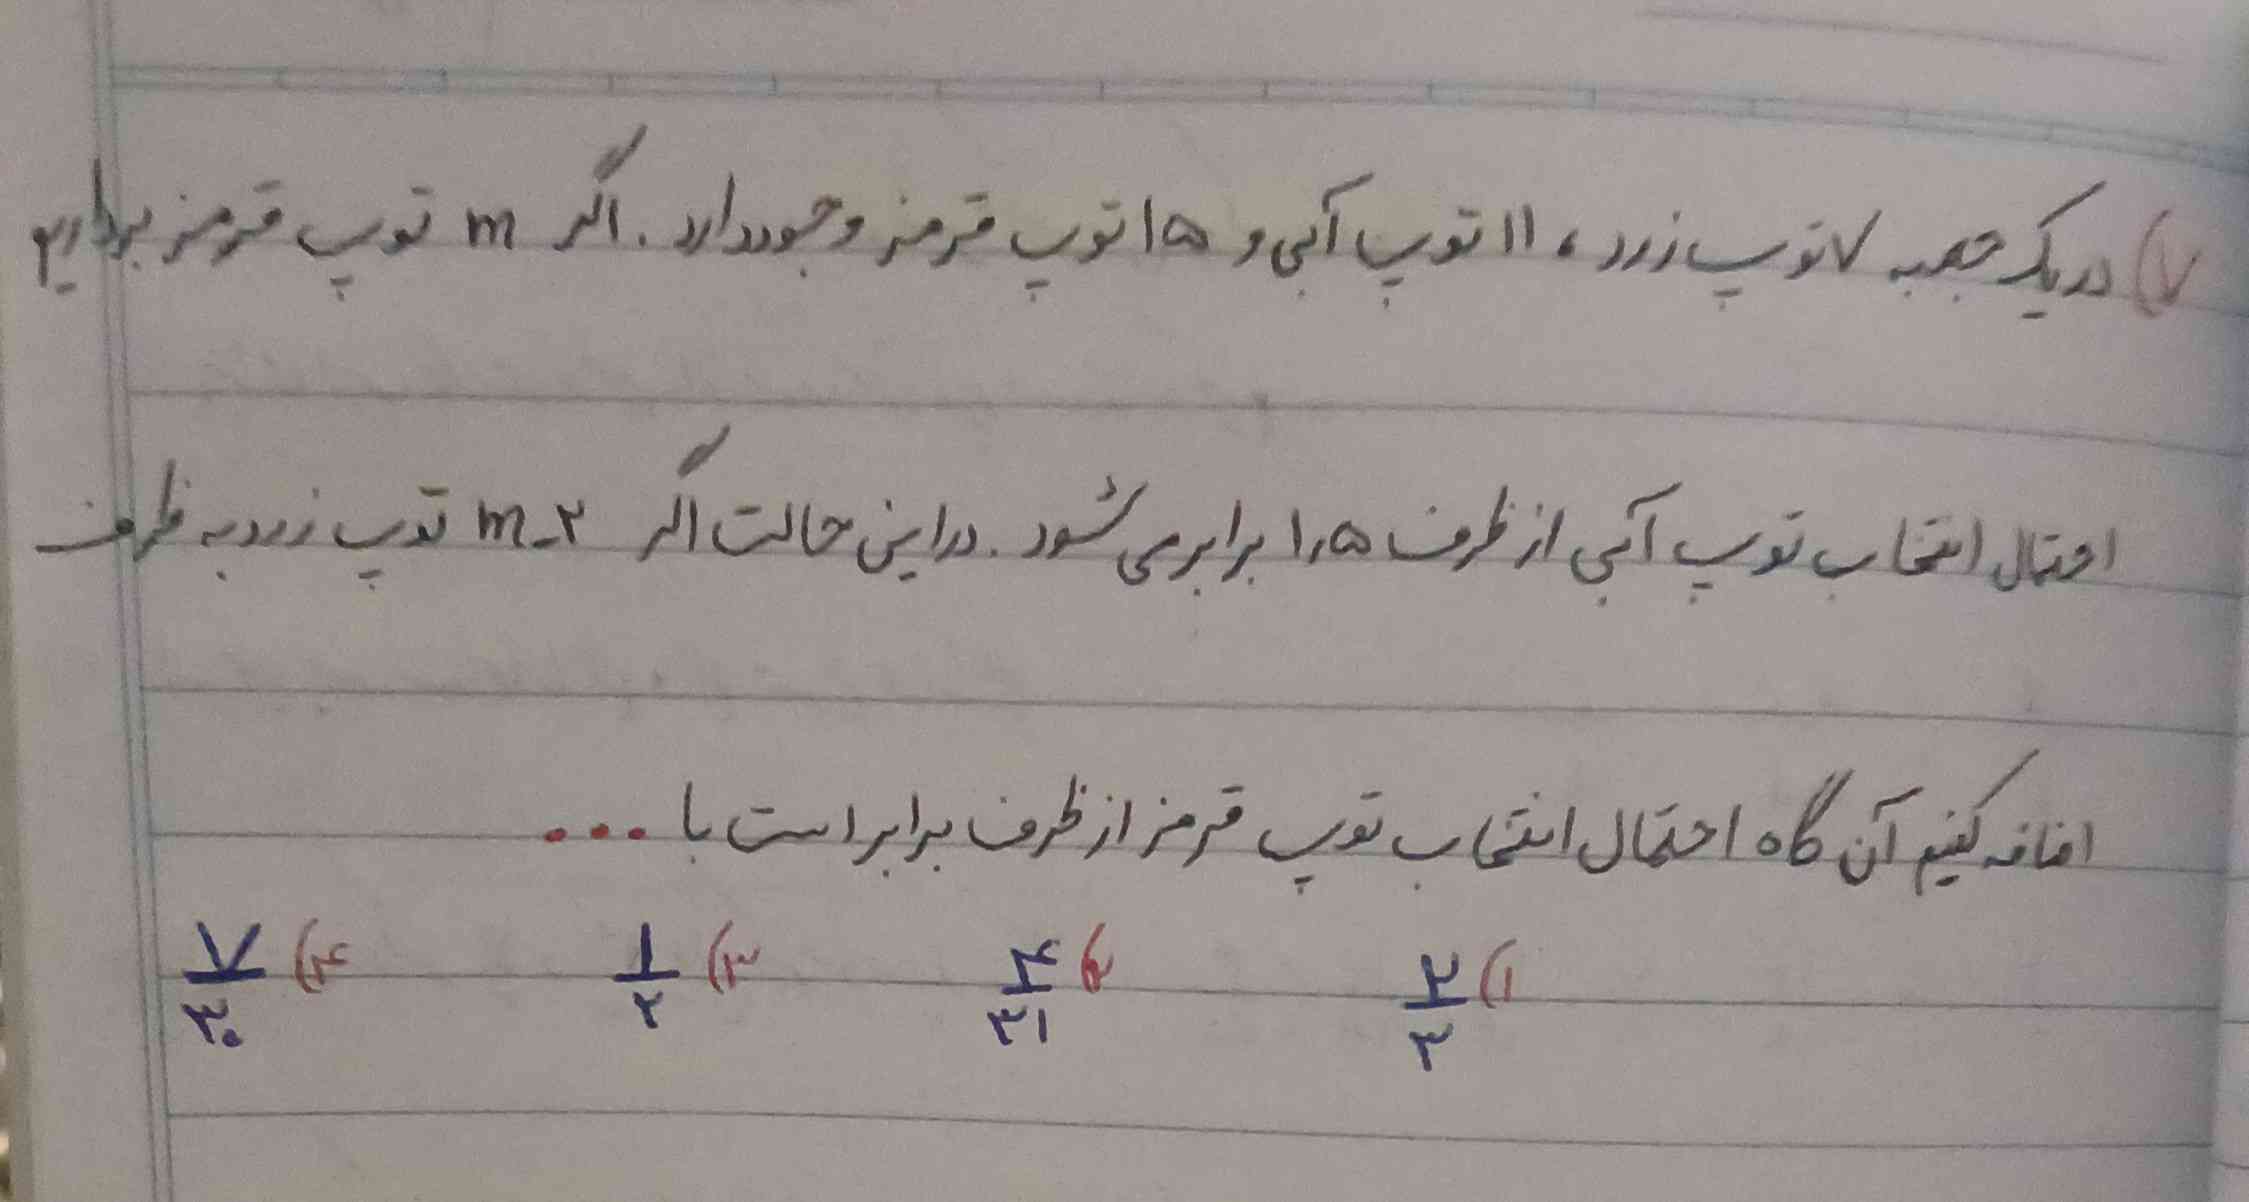 ۷) در یک جعبه ۷ توپ زرد ، ۱۱ توپ آبی و ۱۵ توپ قرمز وجود دارد . اگر m توپ قرمز برداریم
احتمال انتخاب توپ آبی از ظرف ۱٫۵ برابر می شود . در این حالت اگر m-۲ توپ زرد به ظرف
اضافه کنیم آن گاه احتمال انتخاب توپ قرمز از ظرف برابر است با ...
۱) ۲/۳ ۲) ۴/۳۱ ۳) ۱/۲ ۴) ۷/۳۰